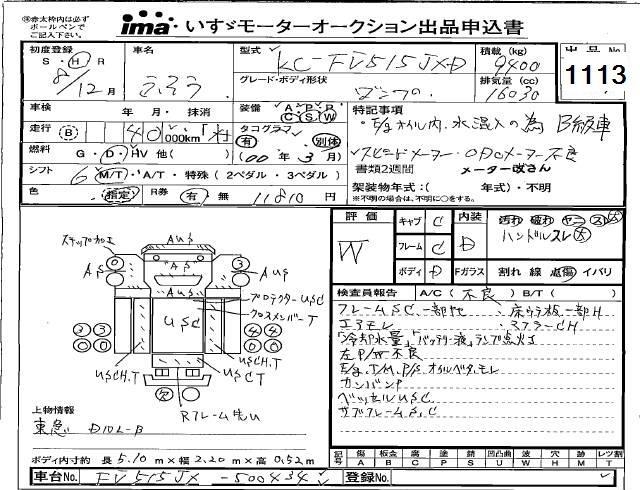 ※赤太枠内は必ず
ボールペンで
ご記入下さい。
ima いすゞモーターオークション出品申込書
初度登録 S・H・R 8/12月
車名 ふそう
型式 KC-FV515JXD
積載 (kg) 9400
排気量 (cc) 16030
出品No. 1113
グレード・ボディ形状 ダンプ
車検 年 月・抹消
装備 A P P C S W
走行 (B) 40 000km
タコグラフ 有 別体
燃料 G・D・HV 他( )
(00年3月)
シフト 6 M/T・A/T・特殊(2ペダル・3ペダル)
色 指定
R券 有・無 11810円
特記事項
・E/gオイル内、水混入の為 B級車
スピードメーター・ODOメーター不良
書類2週間 メーター改ざん
架装物年式:( 年式)・不明
※不明の場合は、不明に○をする。
評価 W
キャブ C
フレーム C
ボディ D
内装 D
汚れ 破れ ヤニ ス 大
ハンドルスレ 大
Fガラス 割れ 線 点傷 イバリ
検査員報告 A/C(不良) B/T( )
フレームSC、一部セ ・床ウラ板一部H
エアモレ ・マフラーCH
「冷却水量」「バッテリー液」ランプ点灯
左P/W不良
E/g.T/M.P/S.オイルベタ、モレ
カンバンP
ベッセルUSC
サブフレームS,C
ステップカエ
AUS
AS
AS
AUS
AUS
プロテクターUSC
クロスメンバーT
USC
USCH,T
USCH.T
USCT
Rフレーム先U
上物情報
東急 D10L-B
ボディ内寸約 長5.10m×幅2.20m×高0.52m
記号 傷 A 板 B 腐 C 塗 P 錆 S 凹凸曲 U 波 W 穴 H 跡 M レツ割 T
車台No. FV515JX-500434
登録No.